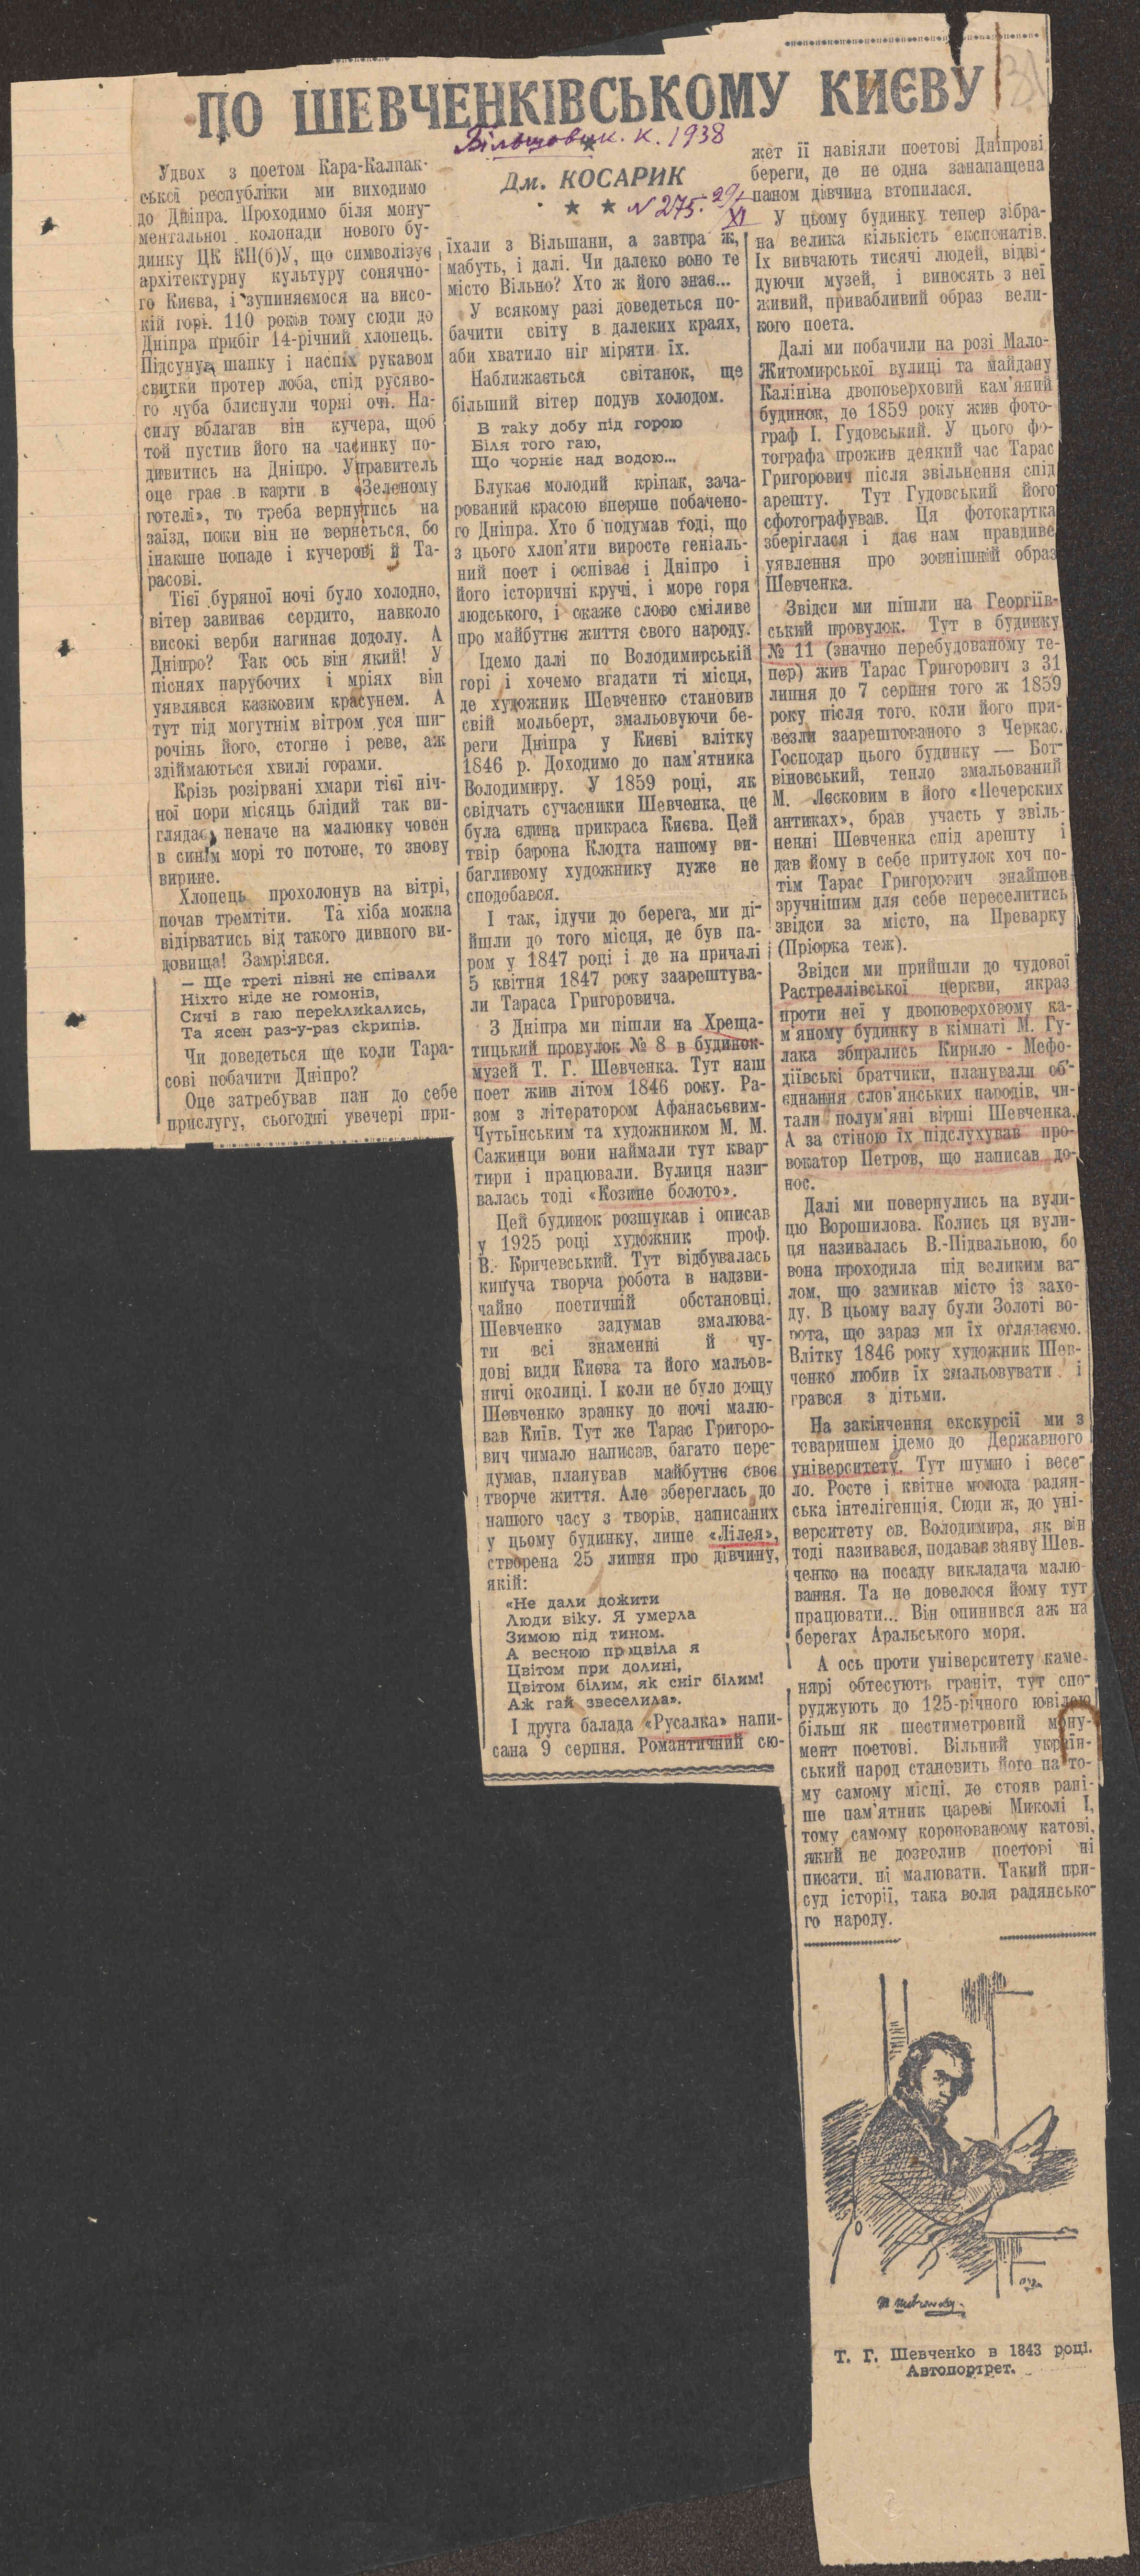 ПО ШЕВЧЕНКІВСЬКОМУ КИЄВУ
31
Більшовик. К. 1938
N 275. 29/XI
Дм. КОСАРИК
Удвох з поетом Кара-Калпак-
ської республіки ми виходимо
до Дніпра. Проходимо біля мону-
ментальної колонади нового бу-
динку ЦК КП(б)У, що символізує
архітектурну культуру сонячно-
го Києва, і зупиняємося на висо-
кій горі. 110 років тому сюди до
Дніпра прибіг 14-річний хлопець.
Підсунув шапку і наспіх рукавом
свитки протер лоба, спід русяво-
го чуба блиснули чорні очі. На-
силу вблагав він кучера, щоб
той пустив його на часинку по-
дивитись на Дніпро. Управитель
оце грає в карти в «Зеленому
готелі», то треба вернутись на
заїзд, поки він не вернеться, бо
інакше попаде і кучерові й Та-
расові.
Тієї буряної ночі було холодно,
вітер завиває сердито, навколо
високі верби нагинає додолу. А
Дніпро? Так ось він який! У
піснях парубочих і мріях він
уявлявся казковим красунем. А
тут під могутнім вітром уся ши-
рочінь його, стогне і реве, аж
здіймаються хвилі горами.
Крізь розірвані хмари тієї ніч-
ної пори місяць блідий так ви-
глядає, неначе на малюнку човен
в синім морі то потоне, то знову
вирине.
Хлопець прохолонув на вітрі,
почав тремтіти. Та хіба можна
відірватись від такого дивного ви-
довища! Замріявся.
— Ще треті півні не співали
Ніхто ніде не гомонів,
Сичі в гаю перекликались,
Та ясен раз-у-раз скрипів.
Чи доведеться ще коли Тара-
сові побачити Дніпро?
Оце затребував пан до себе
прислугу, сьогодні увечері при-
їхали з Вільшани, а завтра ж,
мабуть, і далі. Чи далеко воно те
місто Вільно? Хто ж його знає...
У всякому разі доведеться по-
бачити світу в далеких краях,
аби хватило ніг міряти їх.
Наближається світанок, ще
більший вітер подув холодом.
В таку добу під горою
Біля того гаю,
Що чорніє над водою...
Блукає молодий кріпак, зача-
рований красою вперше побачено-
го Дніпра. Хто б подумав тоді, що
з цього хлоп'яти виросте геніаль-
ний поет і оспіває і Дніпро і
його історичні кручі, і море горя
людського, і скаже слово сміливе
про майбутнє життя свого народу.
Ідемо далі по Володимирській
горі і хочемо вгадати ті місця,
де художник Шевченко становив
свій мольберт, змальовуючи бе-
реги Дніпра у Києві влітку
1846 р. Доходимо до пам'ятника
Володимиру. У 1859 році, як
свідчать сучасники Шевченка, це
була єдина прикраса Києва. Цей
твір барона Клодта нашому ви-
багливому художнику дуже не
сподобався.
І так, ідучи до берега, ми ді-
йшли до того місця, де був па-
ром у 1847 році і де на причалі
5 квітня 1847 року заарештува-
ли Тараса Григоровича.
З Дніпра ми пішли на Хреща-
тицький провулок № 8 в будинок-
музей Т. Г. Шевченка. Тут наш
поет жив літом 1846 року. Ра-
зом з літератором Афанасьєвим-
Чутьїнським та художником М. М.
Сажинци вони наймали тут квар-
тири і працювали. Вулиця нази-
валась тоді «Козине болото».
Цей будинок розшукав і описав
у 1925 році художник проф.
В. Кричевський. Тут відбувалась
кипуча творча робота в надзви-
чайно поетичній обстановці.
Шевченко задумав змалюва-
ти всі знаменні й чу-
дові види Києва та його мальов-
ничі околиці. І коли не було дощу
Шевченко зранку до ночі малю-
вав Київ. Тут же Тарас Григоро-
вич чимало написав, багато пере-
думав, планував майбутнє своє
творче життя. Але збереглась до
нашого часу з творів, написаних
у цьому будинку, лише «Лілея»,
створена 25 липня про дівчину,
якій:
«Не дали дожити
Люди віку. Я умерла
Зимою під тином.
А весною процвіла я
Цвітом при долині,
Цвітом білим, як сніг білим!
Аж гай звеселила».
І друга балада «Русалка» напи-
сана 9 серпня. Романтичний сю-
жет її навіяли поетові Дніпрові
береги, де не одна занапащена
паном дівчина втопилася.
У цьому будинку тепер зібра-
на велика кількість експонатів.
Їх вивчають тисячі людей, відві-
дуючи музей, і виносять з неї
живий, привабливий образ вели-
кого поета.
Далі ми побачили на розі Мало-
Житомирської вулиці та майдану
Калініна двоповерховий кам'яний
будинок, де 1859 року жив фото-
граф І. Гудовський. У цього фо-
тографа прожив деякий час Тарас
Григорович після звільнення спід
арешту. Тут Гудовський його
сфотографував. Ця фотокартка
зберіглася і дає нам правдиве
уявлення про зовнішній образ
Шевченка.
Звідси ми пішли на Георгіїв-
ський провулок. Тут в будинку
№ 11 (значно перебудованому те-
пер) жив Тарас Григорович з 31
липня до 7 серпня того ж 1859
року після того, коли його при-
везли заарештованого з Черкас.
Господар цього будинку — Бот-
віновський, тепло змальований
М. Лєсковим в його «Печерских
антиках», брав участь у звіль-
ненні Шевченка спід арешту і
дав йому в себе притулок хоч по-
тім Тарас Григорович знайшов
зручнішим для себе переселитись
звідси за місто, на Преварку
(Пріорка теж).
Звідси ми прийшли до чудової
Растреллівської церкви, якраз
проти неї у двоповерховому ка-
м'яному будинку в кімнаті М. Гу-
лака збирались Кирило - Мефо-
діївські братчики, планували об'-
єднання слов'янських народів, чи-
тали полум'яні вірші Шевченка.
А за стіною їх підслухував про-
вокатор Петров, що написав до-
нос.
Далі ми повернулись на вули-
цю Ворошилова. Колись ця вули-
ця називалась В.-Підвальною, бо
вона проходила під великим ва-
лом, що замикав місто із захо-
ду. В цьому валу були Золоті во-
рота, що зараз ми їх оглядаємо.
Влітку 1846 року художник Шев-
ченко любив їх змальовувати і
грався з дітьми.
На закінчення екскурсії ми з
товаришем ідемо до Державного
університету. Тут шумно і весе-
ло. Росте і квітне молода радян-
ська інтелігенція. Сюди ж, до уні-
верситету св. Володимира, як він
тоді називався, подавав заяву Шев-
ченко на посаду викладача малю-
вання. Та не довелося йому тут
працювати... Він опинився аж на
берегах Аральського моря.
А ось проти університету каме-
нярі обтесують граніт, тут спо-
руджують до 125-річного ювілею
більш як шестиметровий мону-
мент поетові. Вільний україн-
ський народ становить його на то-
му самому місці, де стояв рані-
ше пам'ятник цареві Миколі І,
тому самому коронованому катові,
який не дозволив поетові ні
писати, ні малювати. Такий при-
суд історії, така воля радянсько-
го народу.
Т. Г. Шевченко в 1843 році.
Автопортрет.